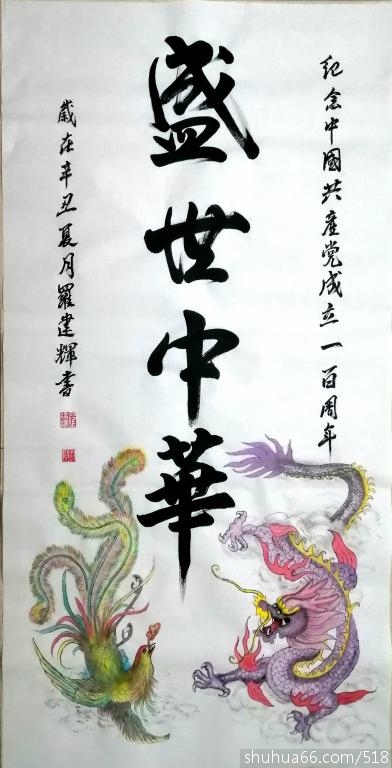 紀念中國共産党成立一百周年
盛世中華
歲在辛丑夏月羅建輝書
shuhua66.com/518